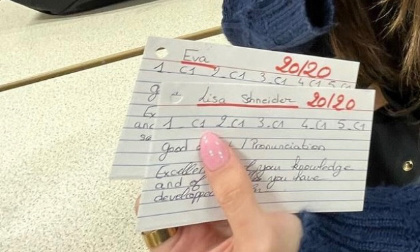 Eva 20/20
1_ C1 2_C1 3_C1 4_C1 5_C1
g
Ex
and
Lisa Shneider 20/20
1_ C1 2_C1 3_C1 4_C1 5_C1
good / Pronunciation
of your knowledge
and of you have